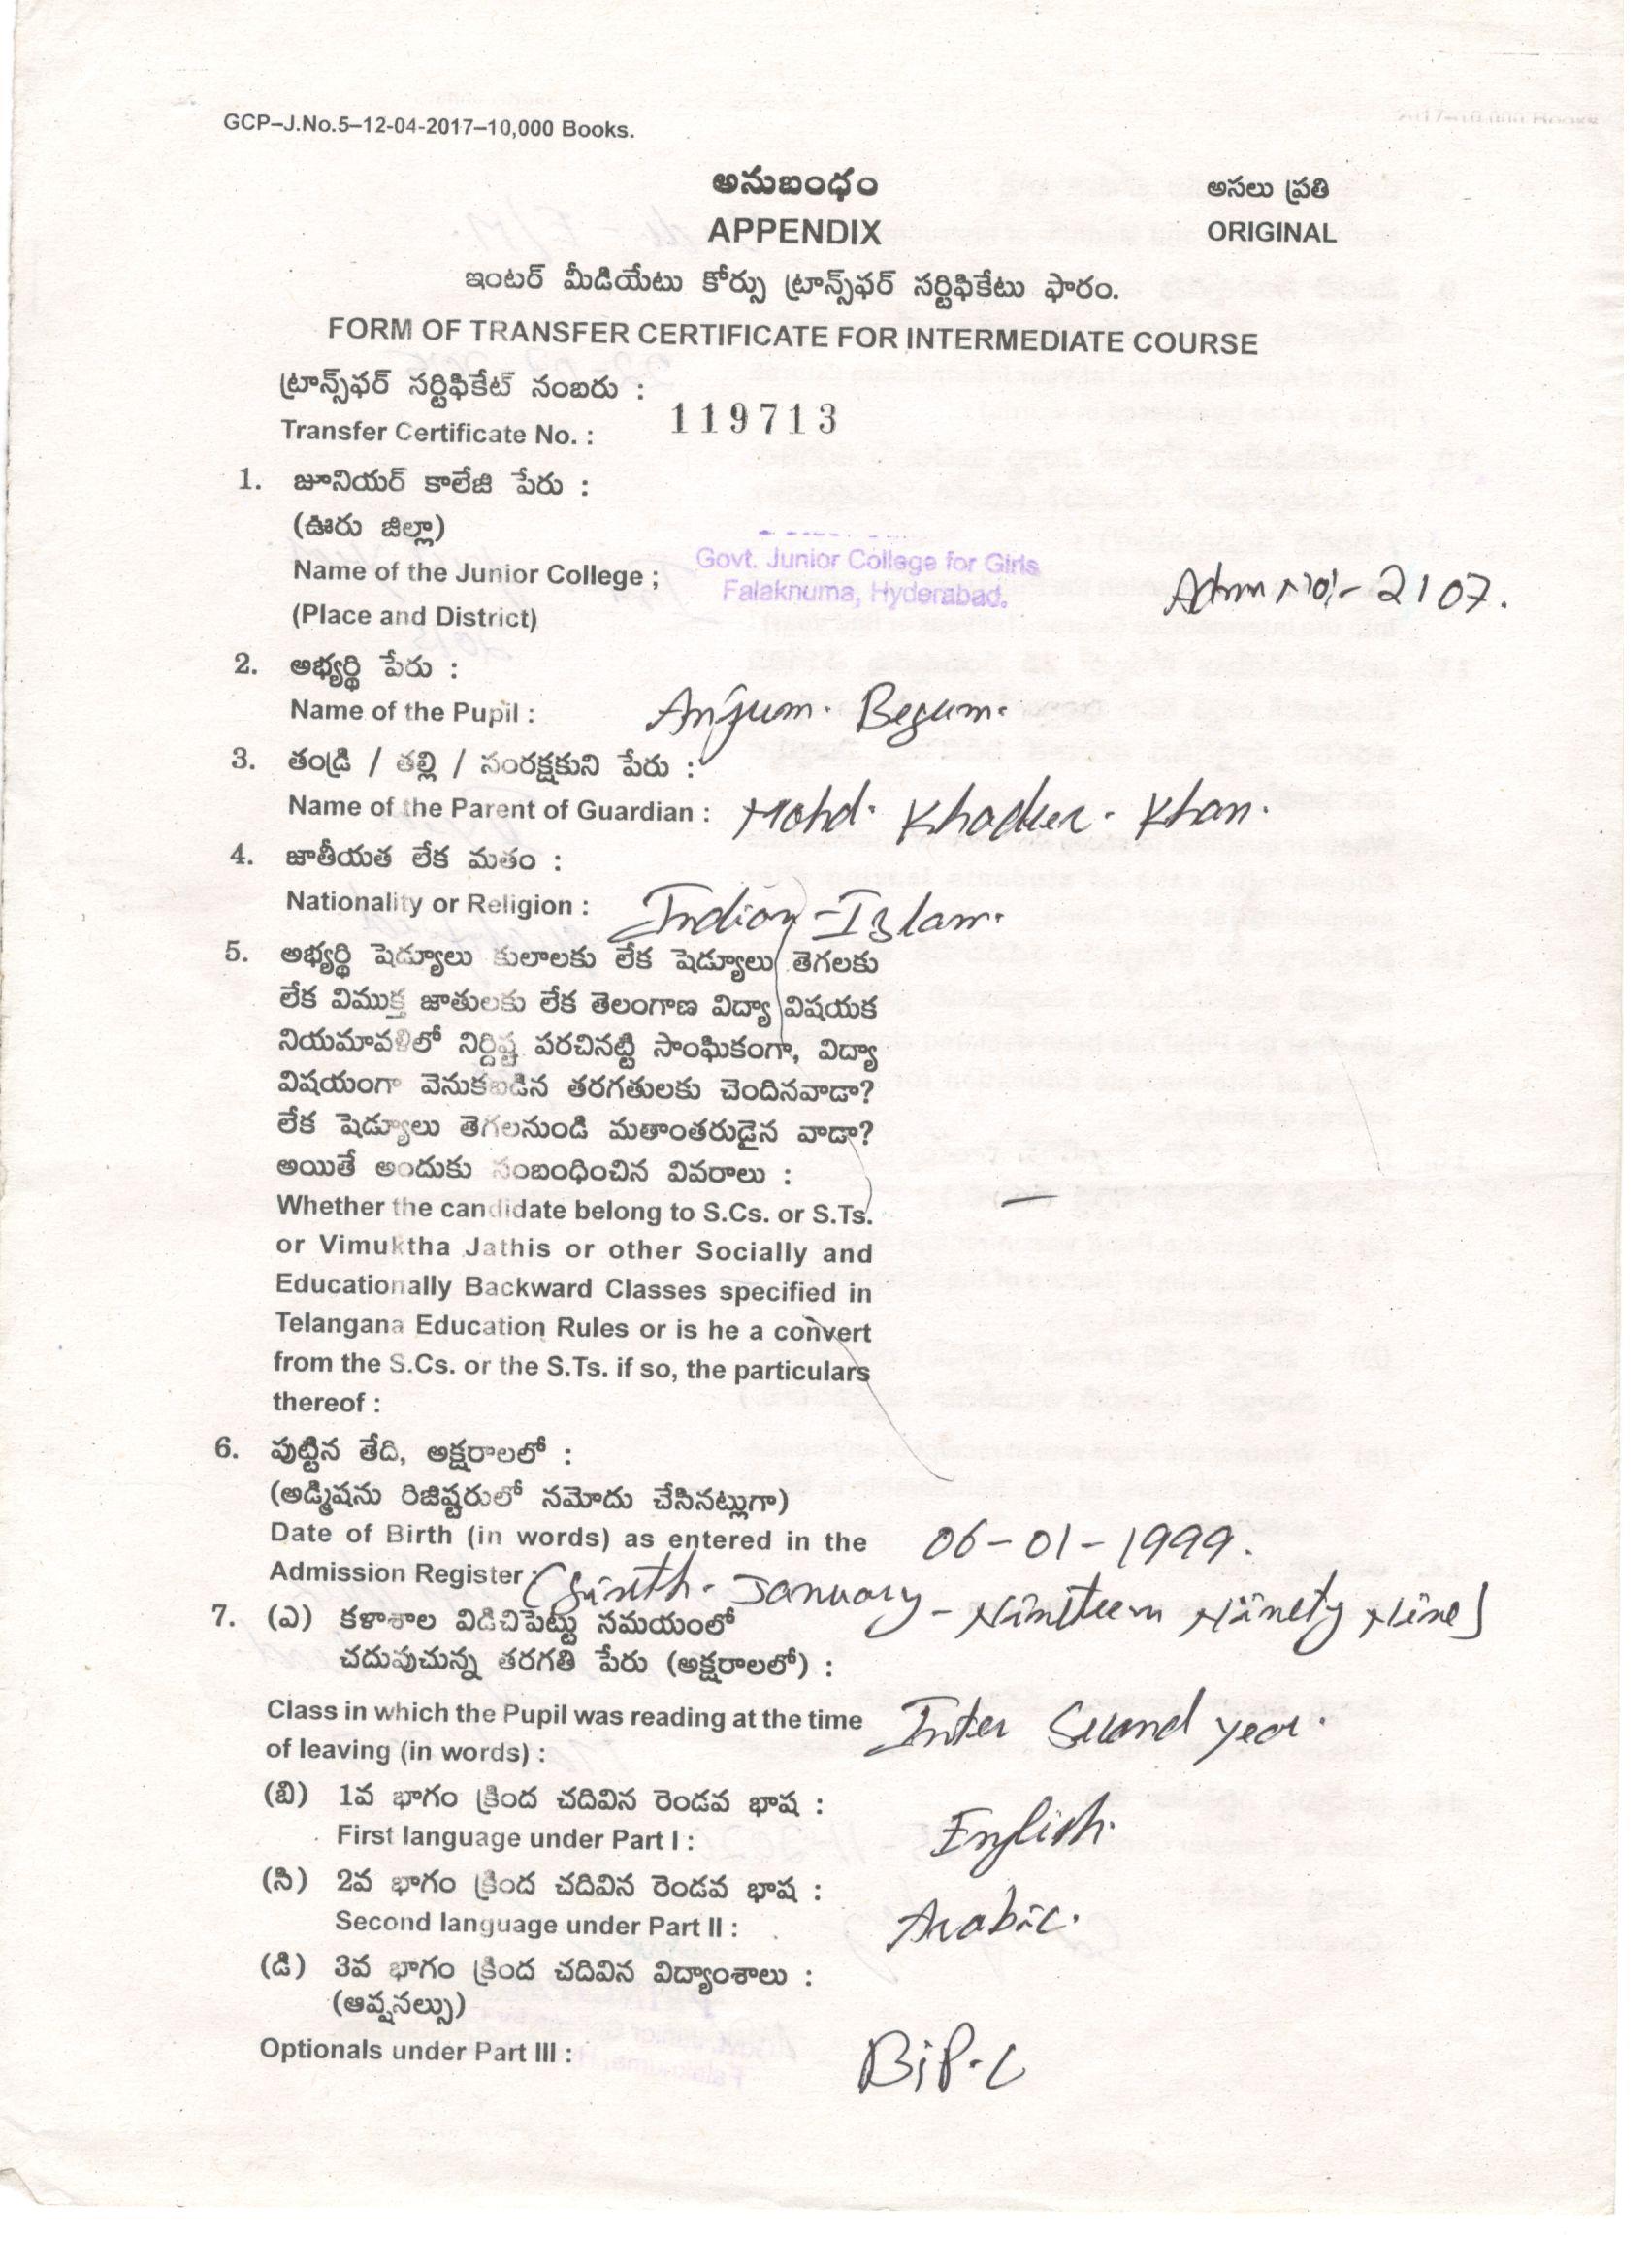 GCP–J.No.5–12-04-2017–10,000 Books.
అనుబంధం
అసలు ప్రతి
APPENDIX
ORIGINAL
ఇంటర్ మీడియేటు కోర్సు ట్రాన్స్‌ఫర్ సర్టిఫికేటు ఫారం.
FORM OF TRANSFER CERTIFICATE FOR INTERMEDIATE COURSE
ట్రాన్స్‌ఫర్ సర్టిఫికేట్ నంబరు :
Transfer Certificate No. : 119713
1. జూనియర్ కాలేజి పేరు :
(ఊరు జిల్లా)
Govt. Junior College for Girls
Name of the Junior College ;
Falaknuma, Hyderabad.
Admn No:- 2107.
(Place and District)
2. అభ్యర్థి పేరు :
Name of the Pupil : Anjum. Begum.
3. తండ్రి / తల్లి / సంరక్షకుని పేరు :
Name of the Parent of Guardian : Mohd. Khadeer. Khan.
4. జాతీయత లేక మతం :
Nationality or Religion : Indian - Islam.
5. అభ్యర్థి షెడ్యూలు కులాలకు లేక షెడ్యూలు తెగలకు
లేక విముక్త జాతులకు లేక తెలంగాణ విద్యా విషయక
నియమావళిలో నిర్దిష్ట పరచినట్టి సాంఘికంగా, విద్యా
విషయంగా వెనుకబడిన తరగతులకు చెందినవాడా?
లేక షెడ్యూలు తెగలనుండి మతాంతరుడైన వాడా?
అయితే అందుకు సంబంధించిన వివరాలు :
Whether the candidate belong to S.Cs. or S.Ts. —
or Vimuktha Jathis or other Socially and
Educationally Backward Classes specified in
Telangana Education Rules or is he a convert
from the S.Cs. or the S.Ts. if so, the particulars
thereof :
6. పుట్టిన తేది, అక్షరాలలో :
(అడ్మిషను రిజిష్టరులో నమోదు చేసినట్లుగా)
Date of Birth (in words) as entered in the 06-01-1999.
Admission Register : (Sixth. January - Nineteen Ninety Nine)
7. (ఎ) కళాశాల విడిచిపెట్టు సమయంలో
చదువుచున్న తరగతి పేరు (అక్షరాలలో) :
Class in which the Pupil was reading at the time Inter Second year.
of leaving (in words) :
(బి) 1వ భాగం క్రింద చదివిన రెండవ భాష :
First language under Part I : English.
(సి) 2వ భాగం క్రింద చదివిన రెండవ భాష :
Second language under Part II : Arabic.
(డి) 3వ భాగం క్రింద చదివిన విద్యాంశాలు :
(ఆప్షనల్సు)
Optionals under Part III : BiP.C